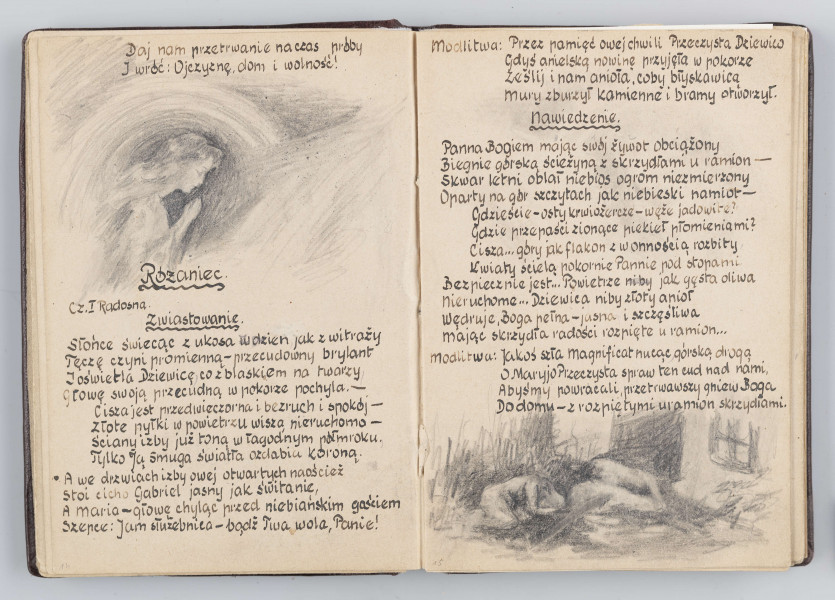 Daj nam przetrwanie na czas próby
I wróć: Ojczyznę, dom i wolność!
Różaniec.
Cz. I Radosna.
Zwiastowanie.
Słońce świecąc z ukosa w dzień jak z witraży
Tęczę czyni promienną – przecudowny brylant
I oświetla Dziewicę co z blaskiem na twarzy,
Głowę swoją przecudną w pokorze pochyla. –
Cisza jest przedwieczorna i bezruch i spokój –
Złote pyłki w powietrzu wiszą nieruchomo –
Ściany izby już toną w łagodnym półmroku.
Tylko Ją smuga światła ozdabia koroną.
A we drzwiach izby owej otwartych naoścież
Stoi cicho Gabriel jasny jak świtanie,
A Maria – głowę chyląc przed niebiańskim gościem
Szepce: Jam służebnica – bądź Twa wola, Panie!
Modlitwa: Przez pamięć owej chwili Przeczysta Dziewico
Gdyś anielską nowinę przyjęła w pokorze
Ześlij i nam anioła, coby błyskawicą
Mury zburzył kamienne i bramy otworzył.
Nawiedzenie.
Panna Bogiem mając swój żywot obciążony
Biegnie górską ścieżyną z skrzydłami u ramion –
Skwar letni oblał niebios ogrom niezmierzony
Oparty na gór szczytach jak niebieski namiot –
Gdzieście – osty krwiożercze – węże jadowite?
Gdzie przepaści zionące piekieł płomieniami?
Cisza... góry jak flakon z wonnością rozbity
Kwiaty ścielą pokornie Pannie pod stopami
Bezpiecznie jest... Powietrze niby jak gęsta oliwa
Nieruchome... Dziewica niby złoty anioł
Wędruje, Boga pełna – jasna i szczęśliwa
mając skrzydła radości rozpięte u ramion...
Modlitwa: Jakoś szła Magnificat nucąc górską drogą
O Maryjo Przeczysta spraw ten cud nad nami,
Abyśmy powracali, przetrwawszy gniew Boga
Do domu – z rozpiętymi u ramion skrzydłami.